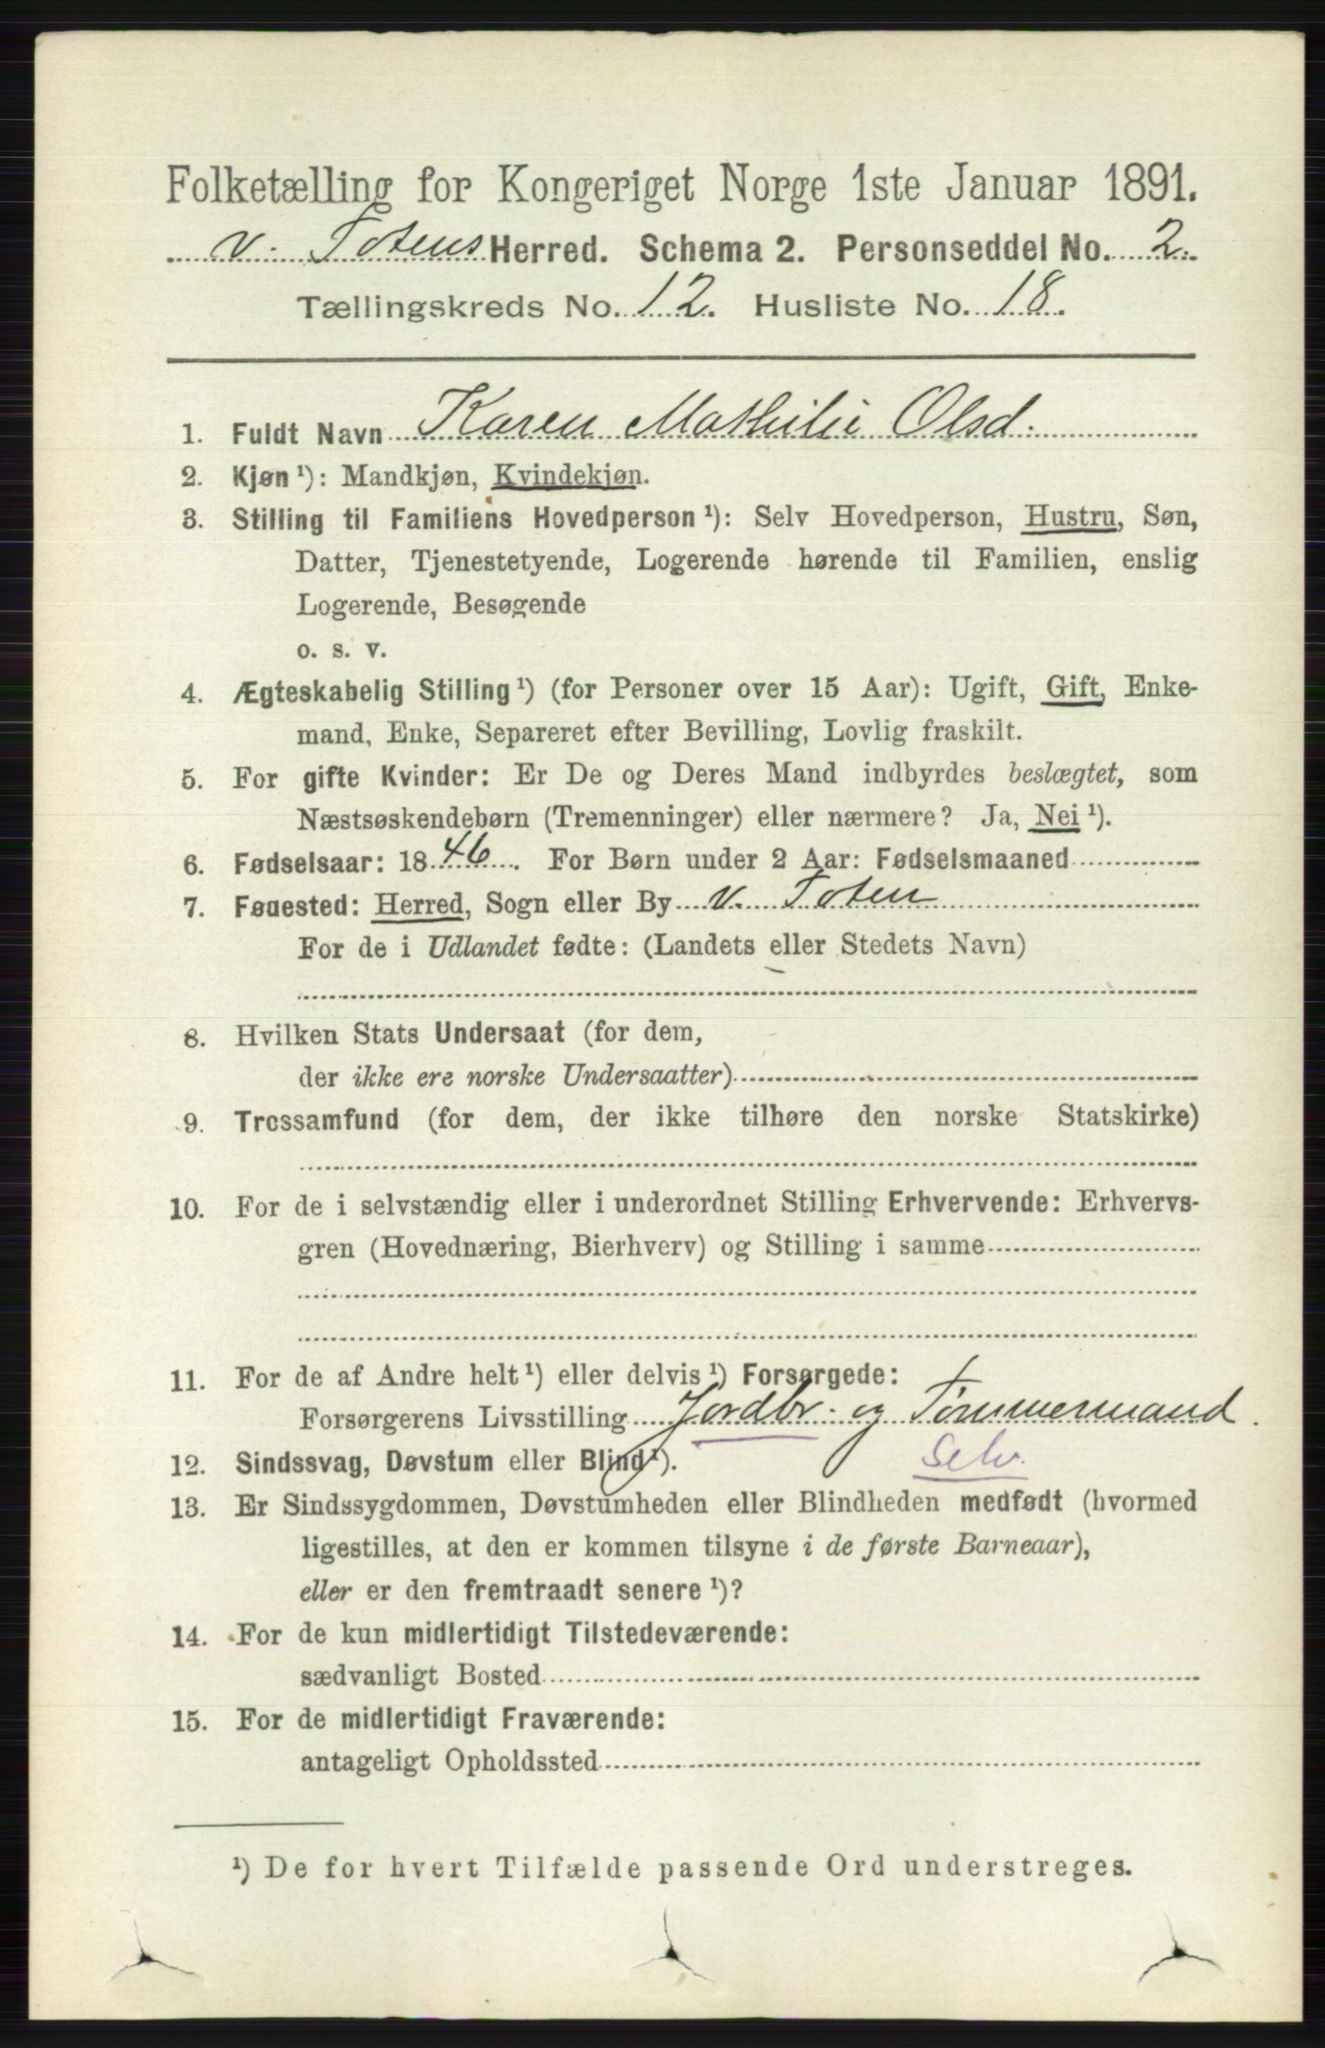 Folketælling for Kongeriget Norge 1ste Januar 1891.
V. Totens Herred. Schema 2. Personseddel No. 2.
Tællingskreds No. 12. Husliste No. 18.
1. Fuldt Navn Karen Mathilie Olsd.
2. Kjøn ¹): Mandkjøn, Kvindekjøn.
3. Stilling til Familiens Hovedperson ¹): Selv Hovedperson, Hustru, Søn,
Datter, Tjenestetyende, Logerende hørende til Familien, enslig
Logerende, Besøgende
o. s. v.
4. Ægteskabelig Stilling ¹) (for Personer over 15 Aar): Ugift, Gift, Enke-
mand, Enke, Separeret efter Bevilling, Lovlig fraskilt.
5. For gifte Kvinder: Er De og Deres Mand indbyrdes beslægtet, som
Næstsøskendebørn (Tremenninger) eller nærmere? Ja, Nei ¹).
6. Fødselsaar: 1846. For Børn under 2 Aar: Fødselsmaaned
7. Føuested: Herred, Sogn eller By V. Toten
For de i Udlandet fødte: (Landets eller Stedets Navn)
8. Hvilken Stats Undersaat (for dem,
der ikke ere norske Undersaatter)
9. Trossamfund (for dem, der ikke tilhøre den norske Statskirke)
10. For de i selvstændig eller i underordnet Stilling Erhvervende: Erhvervs-
gren (Hovednæring, Bierhverv) og Stilling i samme
11. For de af Andre helt ¹) eller delvis ¹) Forsørgede:
Forsørgerens Livsstilling Jordbr. og Tømmermand.
12. Sindssvag, Døvstum eller Blind ¹). Selv.
13. Er Sindssygdommen, Døvstumheden eller Blindheden medfødt (hvormed
ligestilles, at den er kommen tilsyne i de første Barneaar),
eller er den fremtraadt senere ¹)?
14. For de kun midlertidigt Tilstedeværende:
sædvanligt Bosted
15. For de midlertidigt Fraværende:
antageligt Opholdssted
¹) De for hvert Tilfælde passende Ord understreges.